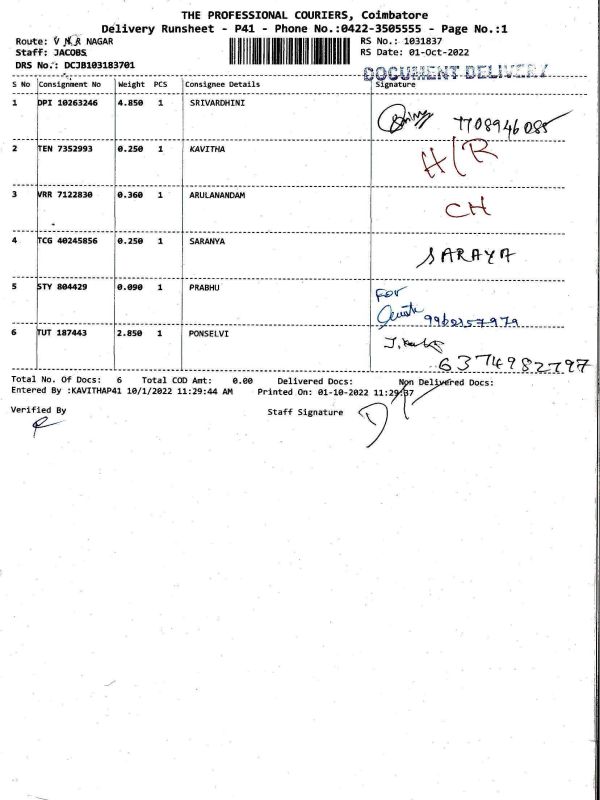 THE PROFESSIONAL COURIERS, Coimbatore
Delivery Runsheet - P41 - Phone No.:0422-3505555 - Page No.:1
Route: V N R NAGAR
RS No.: 1031837
Staff: JACOBS
RS Date: 01-Oct-2022
DRS No.: DCJB103183701
DOCUMENT DELIVERY
S No Consignment No Weight PCS Consignee Details Signature
1 DPI 10263246 4.850 1 SRIVARDHINI 7708946085
2 TEN 7352993 0.250 1 KAVITHA H/R
3 VRR 7122830 0.360 1 ARULANANDAM CH
4 TCG 40245856 0.250 1 SARANYA SARAYA
5 STY 804429 0.090 1 PRABHU For
9960357979
6 TUT 187443 2.850 1 PONSELVI
6374982797
Total No. Of Docs: 6 Total COD Amt: 0.00 Delivered Docs: Non Delivered Docs:
Entered By :KAVITHAP41 10/1/2022 11:29:44 AM Printed On: 01-10-2022 11:29:37
Verified By Staff Signature